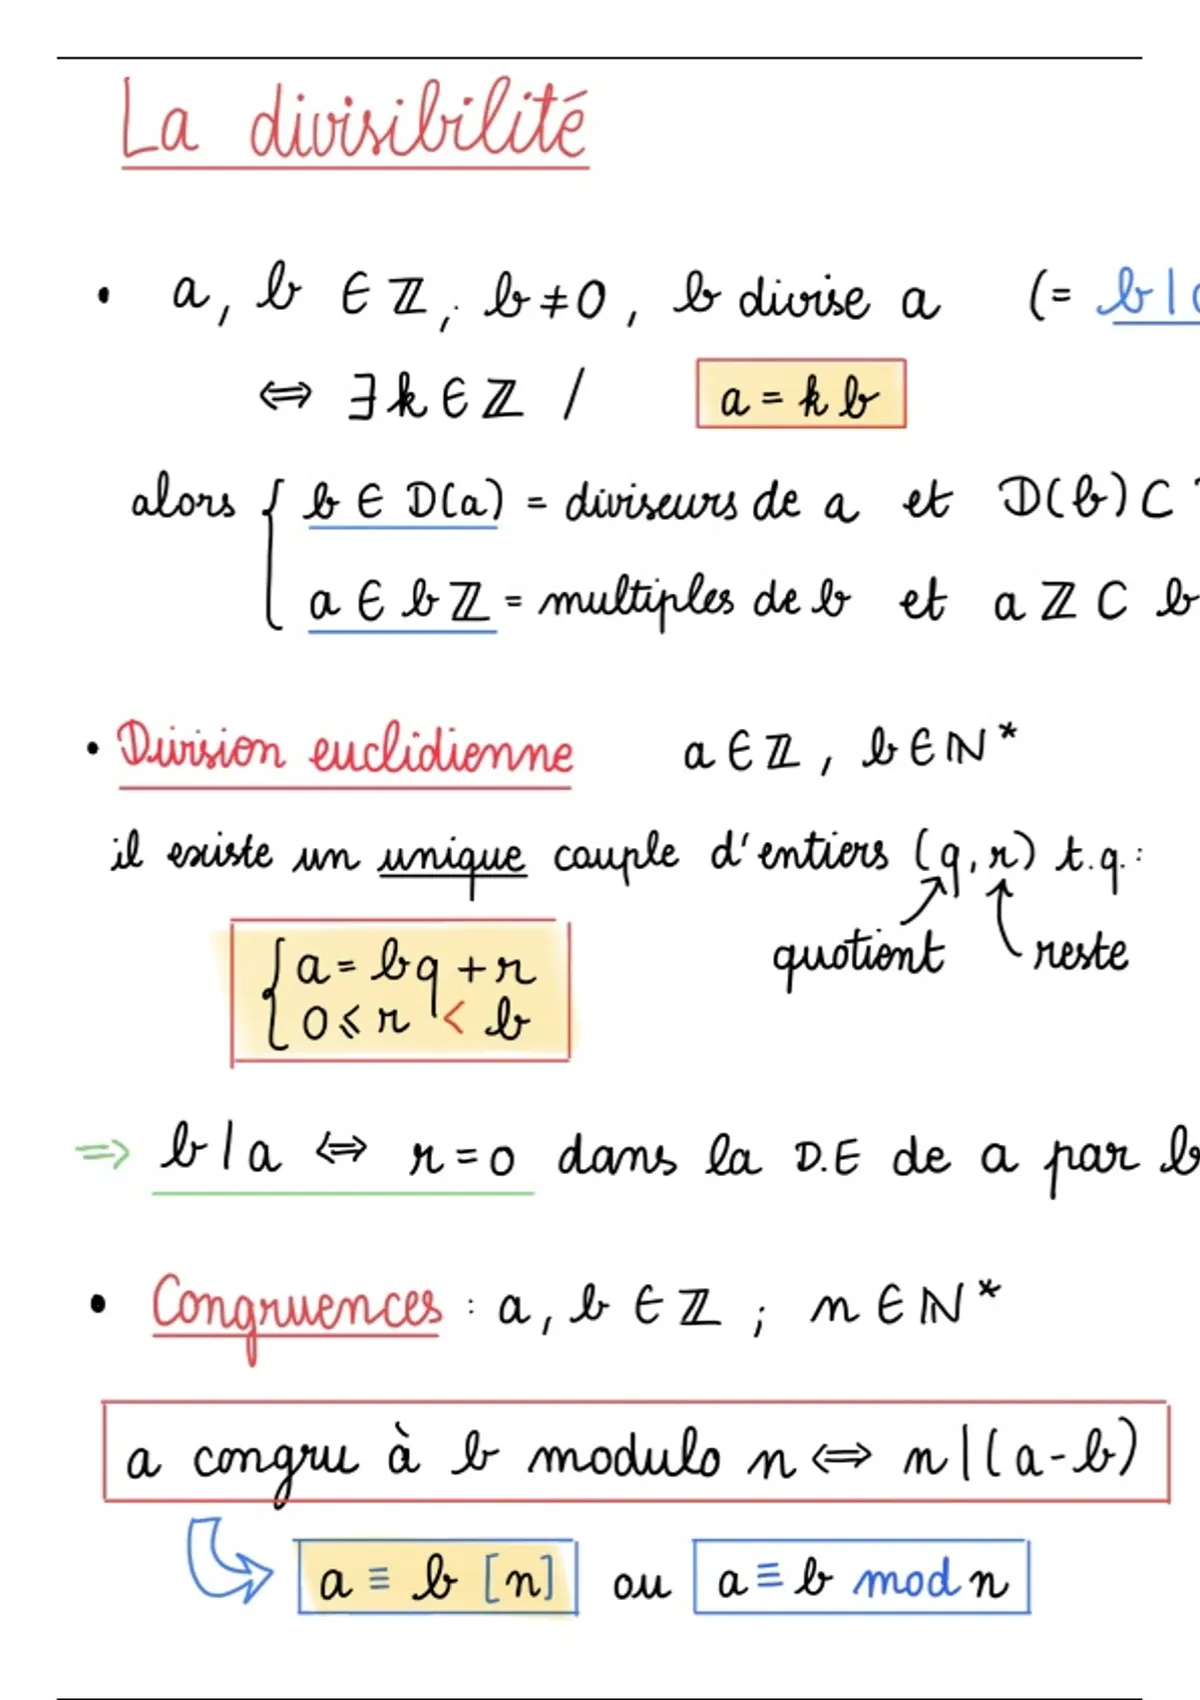 La divisibilité
• a, b ∈ ℤ; b ≠ 0, b divise a (= b|
⇔ ∃ k ∈ ℤ / a = k b
alors { b ∈ D(a) = diviseurs de a et D(b) ⊂
a ∈ bℤ = multiples de b et aℤ ⊂ b
• Division euclidienne a ∈ ℤ, b ∈ ℕ*
il existe un unique couple d'entiers (q, r) t.q. :
quotient reste
{ a = bq + r
0 ⩽ r < b
⇒ b | a ⇔ r = 0 dans la D.E de a par b
• Congruences : a, b ∈ ℤ ; n ∈ ℕ*
a congru à b modulo n ⇔ n | (a - b)
a ≡ b [n] ou a ≡ b mod n